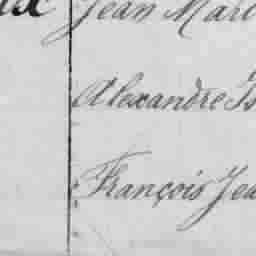 Jean Marc
Alexandre Is
François Jea